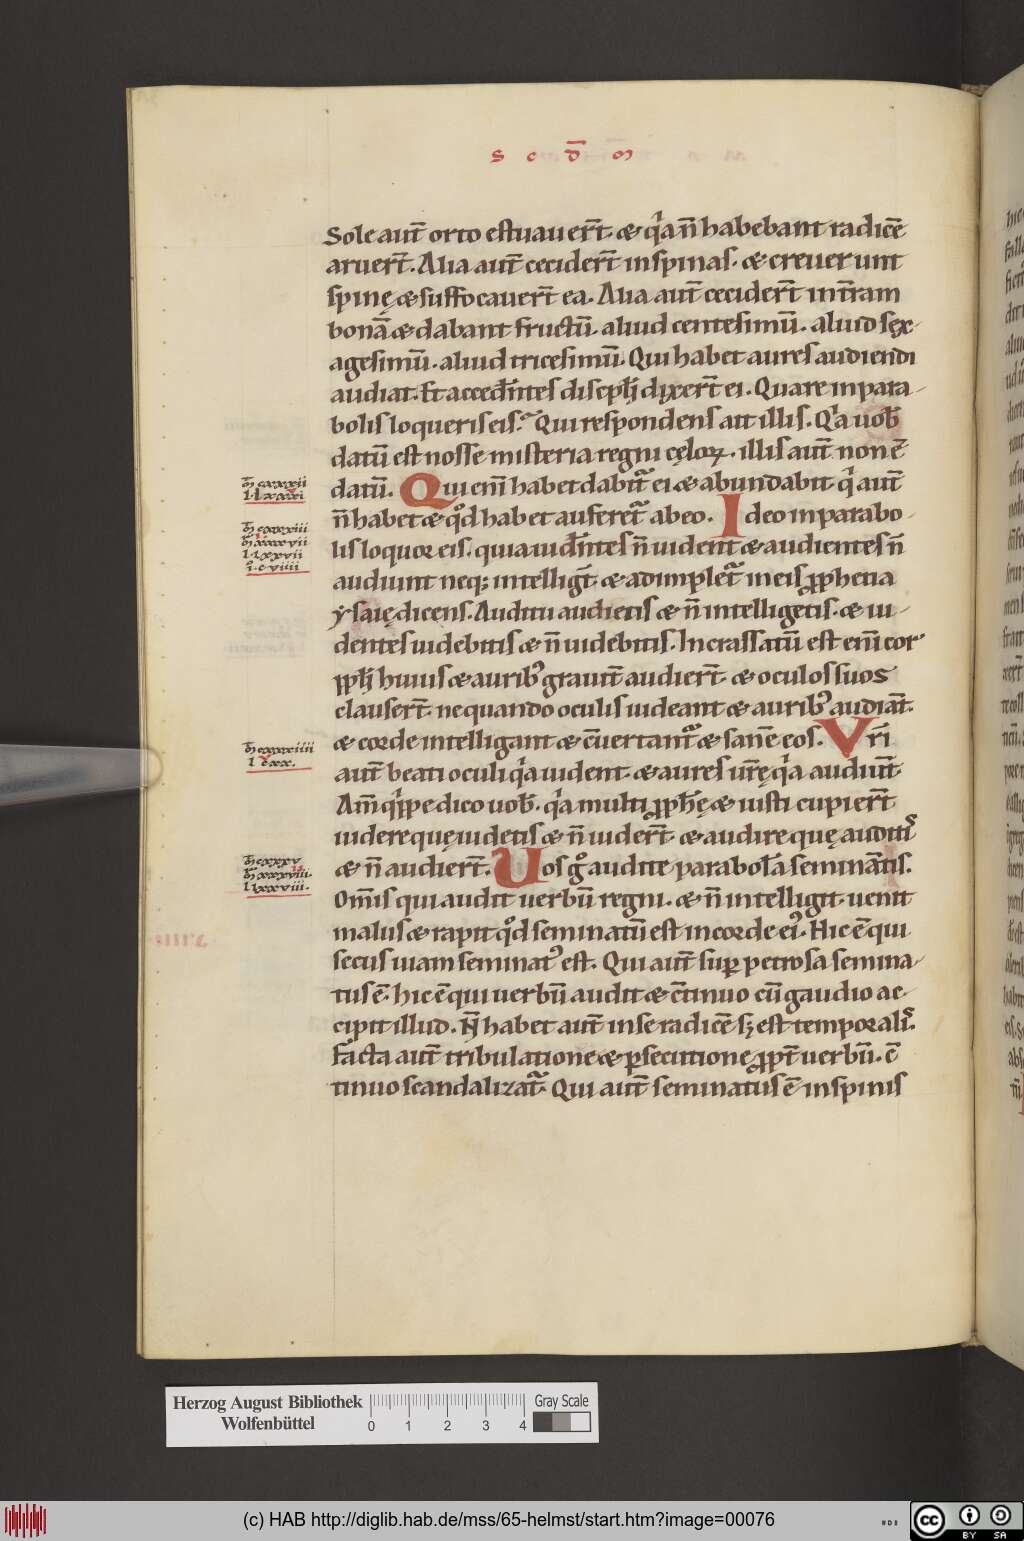 s c d̅ m
Sole aut̅ orto estuauer̅t. & qͥa n̅ habebant radice̅
aruer̅t. Alia aut̅ cecider̅t in spinas. & creuerunt
spinę & suffocauer̅t ea. Alia aut̅ cecider̅t in t̅ram
bona̅ & dabant fructu̅. aliud centesimu̅. aliud sex-
agesimu̅. aliud tricesimu̅. Qui habet aures audiendi
audiat. Et acced̅ntes discipl̅i dixer̅t ei. Quare in para-
bolis loqueris eis. Qui respondens ait illis. Qͥa uob̅
datu̅ est nosse misteria regni cęloꝝ. illis aut̅ non e̅
datu̅. Qui eni̅ habet dabit̅ ei & abundabit. qͥ aut̅
n̅ habet & qͦd habet auferet̅ ab eo. Ideo in parabo-
lis loquor eis. quia uid̅ntes n̅ uident & audientes n̅
audiunt neq; intellig̅t. & adimplet̅ in eis ꝓphetia
ysaię dicens. Auditu audietis & n̅ intelligetis. & ui-
dentes uidebitis & n̅ uidebitis. Incrassatu̅ est eni̅ cor
ppl̅i huius & aurib; grauit̅ audier̅t. & oculos suos
clauser̅t. nequando oculis uideant & aurib; audia̅t.
& corde intelligant & c̅uertant̅ & sane̅ eos. Vr̅i
aut̅ beati oculi qͥa uident. & aures ur̅ę qͥa audiu̅t.
Am̅ qͥppe dico uob̅. qͥa multi ꝓph̅ę & iusti cupier̅t
uidere quę uidetis & n̅ uider̅t. & audire quę auditis
& n̅ audier̅t. Uos gͦ audite parabola̅ semina̅tis.
Om̅is qui audit uerbu̅ regni. & n̅ intelligit. uenit
malus & rapit qͦd seminatu̅ est in corde ei᾽. Hic e̅ qui
secus uiam seminat᾽ est. Qui aut̅ sup̱ petrosa semina-
tus e̅. hic e̅ qui uerbu̅ audit & c̅tinuo cu̅ gaudio ac-
cipit illud. N̅ habet aut̅ in se radice̅ sꝫ est temporalis.
Facta aut̅ tribulatione & ꝑsecutione ꝓpt̅ uerbu̅. c̅
tinuo scandalizat̅. Qui aut̅ seminatus e̅ in spinis
Herzog August Bibliothek
Wolfenbüttel
0 1 2 3 4
Gray Scale
(c) HAB http://diglib.hab.de/mss/65-helmst/start.htm?image=00076
cc BY SA